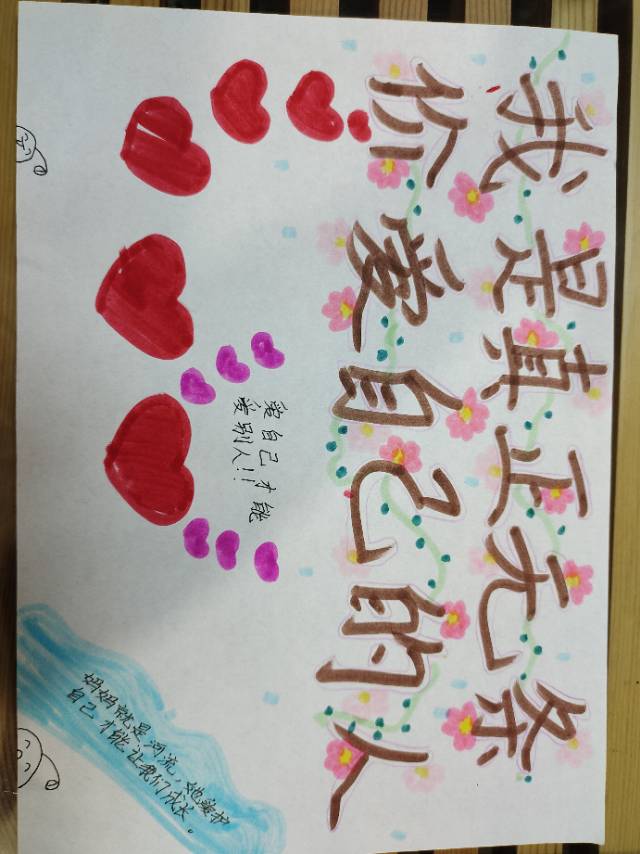 我是真正无条
你爱自己的人
爱自己才能
爱别人!!
妈妈就是河流,她爱护
自己才能让我们成长。